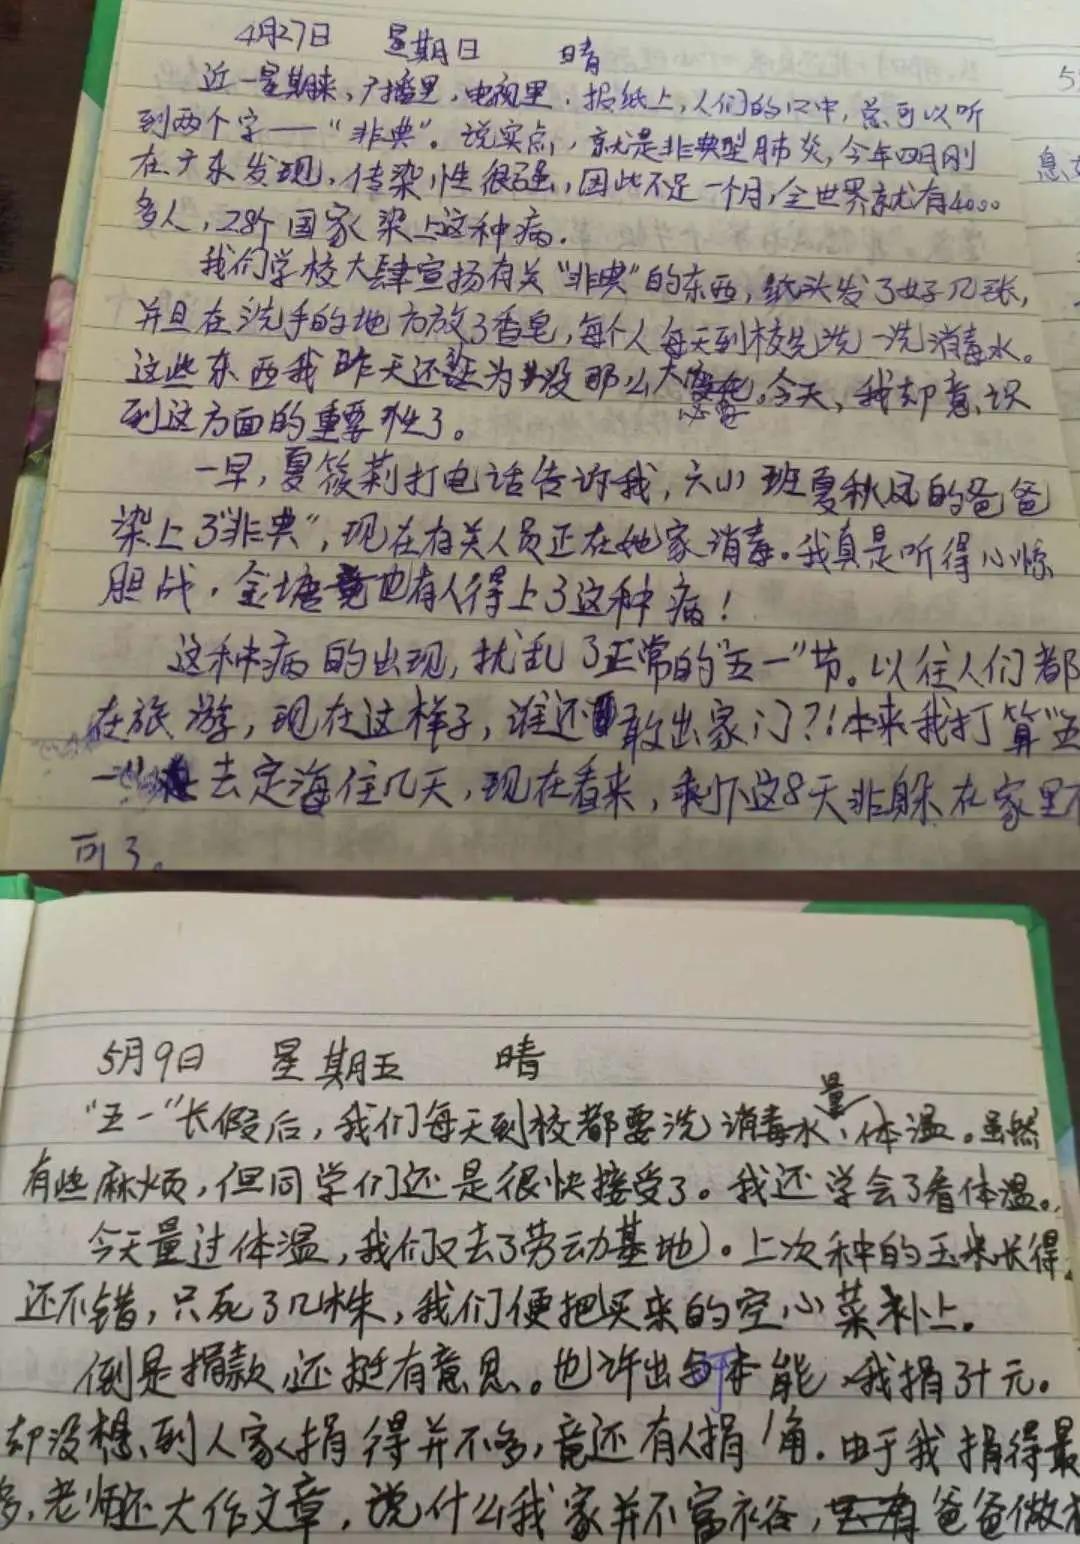 4月27日 星期日 晴
近一星期来，广播里，电视里，报纸上，人们的口中，总可以听
到两个字——“非典”。说实点，就是非典型肺炎，今年四月刚
在广东发现，传染性很强，因此不足一个月，全世界就有4000
多人，28个国家染上这种病．
我们学校大肆宣扬有关“非典”的东西，纸头发了好几张，
并且在洗手的地方放了香皂，每个人每天到校先洗一洗消毒水。
这些东西我昨天还认为没那么大必要。今天，我却意识
到这方面的重要性了。
一早，夏筱莉打电话告诉我，六(1)班夏秋凤的爸爸
染上了“非典”，现在有关人员正在她家消毒。我真是听得心惊
胆战，金塘竟也有人得上了这种病！
这种病的出现，扰乱了正常的“五一”节。以往人们都
在旅游，现在这样子，谁还敢出家门？！本来我打算“五
一”去定海住几天，现在看来，剩下这8天非躲在家里不
可了。
5
息
5月9日 星期五 晴
“五一”长假后，我们每天到校都要洗消毒水、量体温。虽然
有些麻烦，但同学们还是很快接受了。我还学会了看体温。
今天量过体温，我们又去了劳动基地）。上次种的玉米长得
还不错，只死了几株，我们便把买来的空心菜补上。
倒是捐款，还挺有意思。也许出于本能，我捐了十元。
却没想到人家捐得并不多，竟还有人捐1角．由于我捐得最
多，老师还大作文章，说什么我家并不富裕，爸爸做